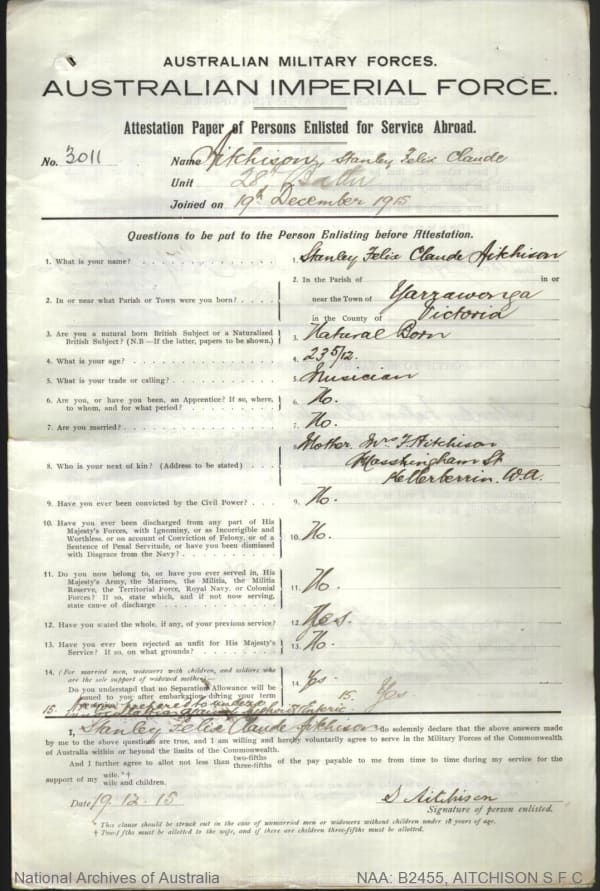 AUSTRALIAN MILITARY FORCES.
AUSTRALIAN IMPERIAL FORCE.
Attestation Paper of Persons Enlisted for Service Abroad.
No. 3011 Name Aitchison, Stanley Felix Claude
Unit 28th Battn
Joined on 19th December 1915
Questions to be put to the Person Enlisting before Attestation.
1. What is your name? 1. Stanley Felix Claude Aitchison
2. In or near what Parish or Town were you born? 2. In the Parish of in or
near the Town of Yarrawonga
in the County of Victoria
3. Are you a natural born British Subject or a Naturalized
British Subject? (N.B.—If the latter, papers to be shown.) 3. Natural Born
4. What is your age? 4. 23 5/12.
5. What is your trade or calling? 5. Musician
6. Are you, or have you been, an Apprentice? If so, where,
to whom, and for what period? 6. No.
7. Are you married? 7. No.
8. Who is your next of kin? (Address to be stated) Mother Mrs F Aitchison
Massingham St
Kellerberrin. W.A.
9. Have you ever been convicted by the Civil Power? 9. No.
10. Have you ever been discharged from any part of His
Majesty's Forces, with Ignominy, or as Incorrigible and
Worthless, or on account of Conviction of Felony, or of a
Sentence of Penal Servitude, or have you been dismissed
with Disgrace from the Navy? 10. No.
11. Do you now belong to, or have you ever served in, His
Majesty's Army, the Marines, the Militia, the Militia
Reserve, the Territorial Force, Royal Navy, or Colonial
Forces? If so, state which, and if not now serving,
state cause of discharge 11. No.
12. Have you stated the whole, if any, of your previous service? 12. Yes.
13. Have you ever been rejected as unfit for His Majesty's
Service? If so, on what grounds? 13. No.
14. (For married men, widowers with children, and soldiers who
are the sole support of widowed mother—
Do you understand that no Separation Allowance will be
issued to you after embarkation during your term 14. Yes
15. Are you prepared to undergo 15. Yes
inoculation against
I, Stanley Felix Claude Aitchison do solemnly declare that the above answers made
by me to the above questions are true, and I am willing and hereby voluntarily agree to serve in the Military Forces of the Commonwealth
of Australia within or beyond the limits of the Commonwealth.
And I further agree to allot not less than two-fifths three-fifths of the pay payable to me from time to time during my service for the
support of my wife.*† wife and children.
Date 19.12.15 S Aitchison
Signature of person enlisted.
* This clause should be struck out in the case of unmarried men or widowers without children under 18 years of age.
† Two-fifths must be allotted to the wife, and if there are children three-fifths must be allotted.
National Archives of Australia NAA: B2455, AITCHISON S F C